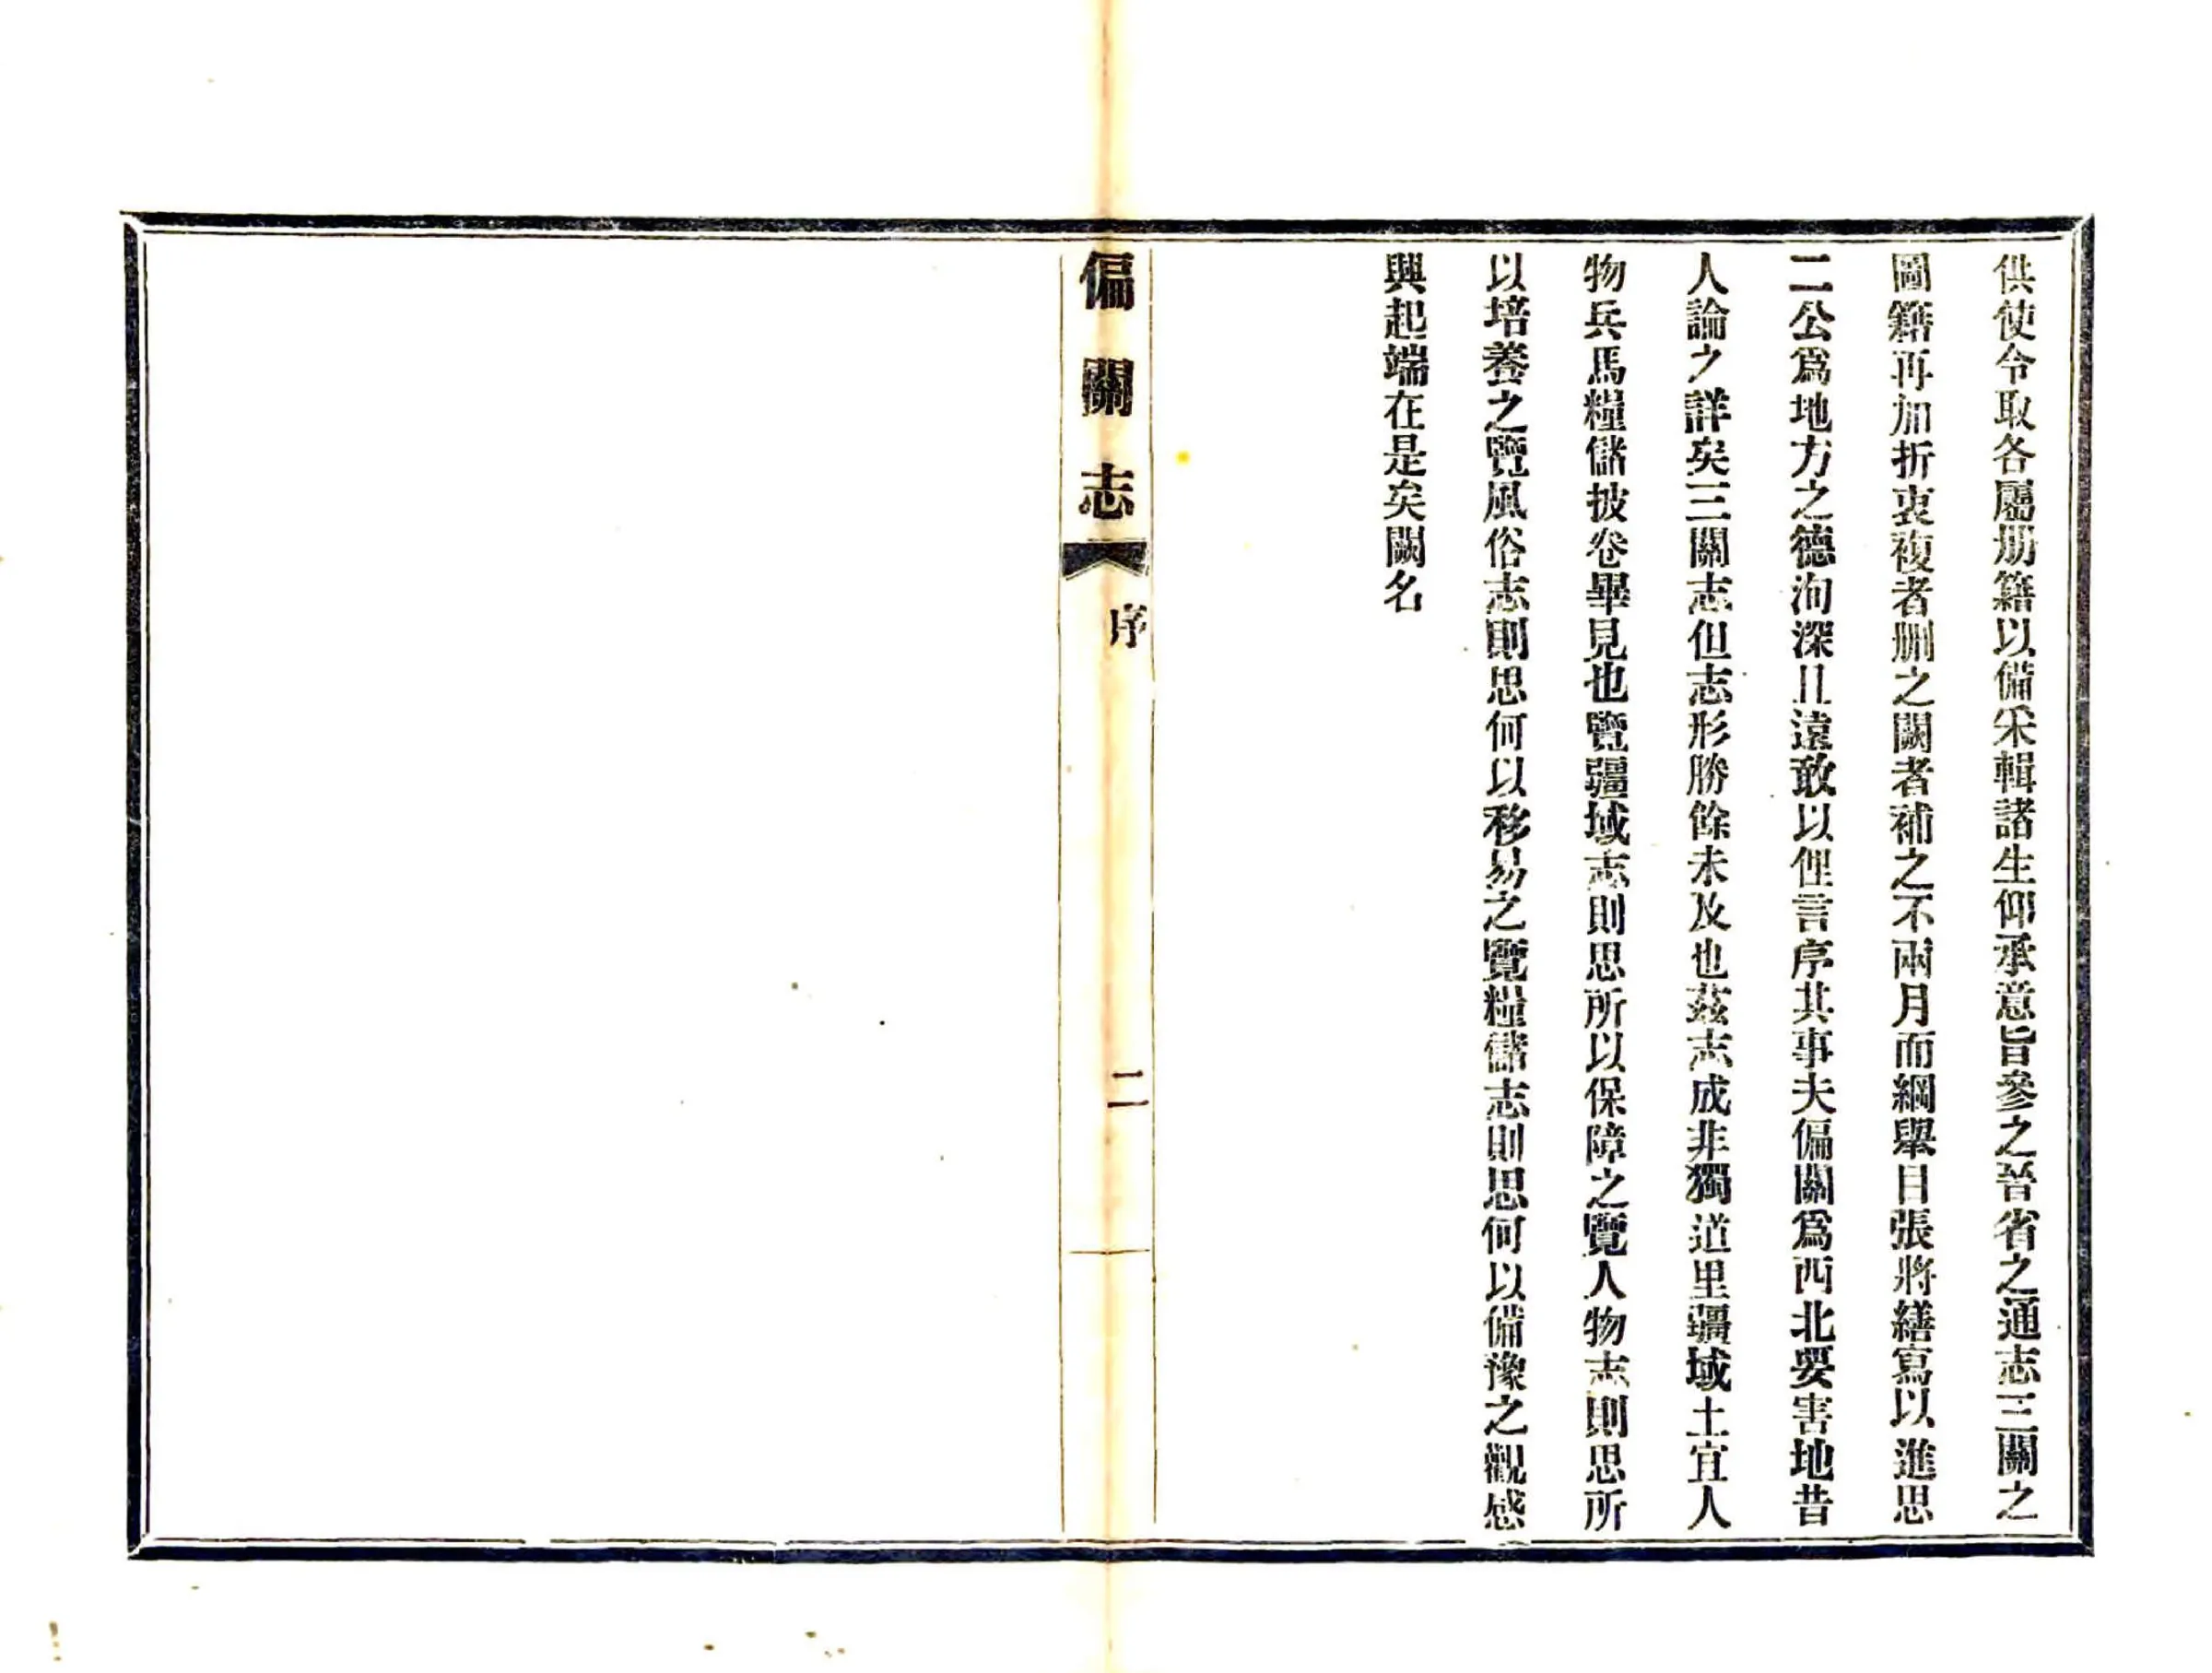 供使令取各屬册籍以備采輯諸生仰承意旨參之晉省之通志三關之
圖籍再加折衷複者删之闕者補之不兩月而綱舉目張將繕寫以進思
二公爲地方之德洵深且遠敢以俚言序其事夫偏關爲西北要害地昔
人論之詳矣三關志但志形勝餘未及也茲志成非獨道里疆域土宜人
物兵馬糧儲披卷畢見也覽疆域志則思所以保障之覽人物志則思所
以培養之覽風俗志則思何以移易之覽糧儲志則思何以備豫之觀感
興起端在是矣闕名
偏關志
序
二